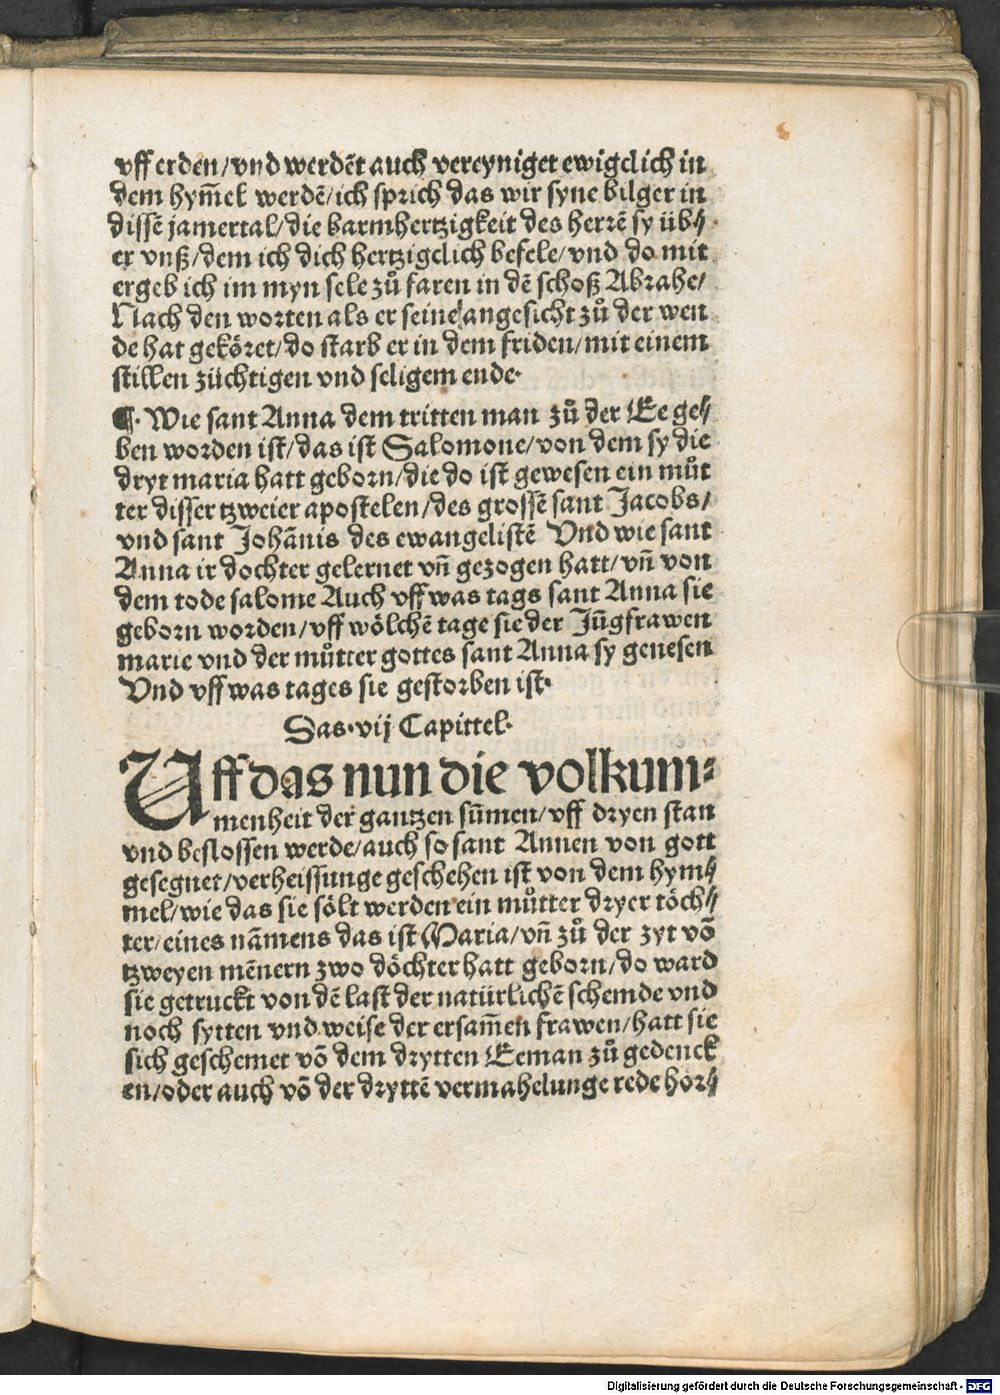 vff erden/vnd werdēt auch vereyniget ewigclich in
dem hym̄el werdē/ich sprich das wir syne bilger in
dissē jamertal/die barmhertzigkeit des herrē sy üb⸗
er vnß/dem ich dich hertzigclich befele/vnd do mit
ergeb ich im myn sele zů faren in dē schoß Abrahe/
Nach den worten als er seine angesicht zů der wen
de hat geköret/do starb er in dem friden/mit einem
stillen züchtigen vnd seligem ende.
¶. Wie sant Anna dem tritten man zů der Ee ge⸗
ben worden ist/das ist Salomone/von dem sy die
dryt maria hatt geborn/die do ist gewesen ein můt
ter disser tzweier apostelen/des grossē sant Jacobs/
vnd sant Johānis des ewangelistē Vnd wie sant
Anna ir dochter gelernet vn̄ gezogen hatt/vn̄ von
dem tode salome Auch vff was tags sant Anna sie
geborn worden/vff wölchē tage sie der Jūgfrawen
marie vnd der můtter gottes sant Anna sy genesen
Vnd vff was tages sie gestorben ist.
Das.vij Capittel.
Uff das nun die volkum⸗
menheit der gantzen sūmen/vff dryen stan
vnd beslossen werde/auch so sant Annen von gott
gesegnet/verheissunge geschehen ist von dem hym⸗
mel/wie das sie sölt werden ein můtter dryer töch⸗
ter/eines nāmens das ist Maria/vn̄ zů der zyt vō
tzweyen mēnern zwo döchter hatt geborn/do ward
sie getruckt von dē last der natürlichē schemde vnd
noch sytten vnd weise der ersam̄en frawen/hatt sie
sich geschemet vō dem drytten Eeman zů gedenck
en/oder auch vō der dryttē vermahelunge rede hör⸗
Digitalisierung gefördert durch die Deutsche Forschungsgemeinschaft - DFG